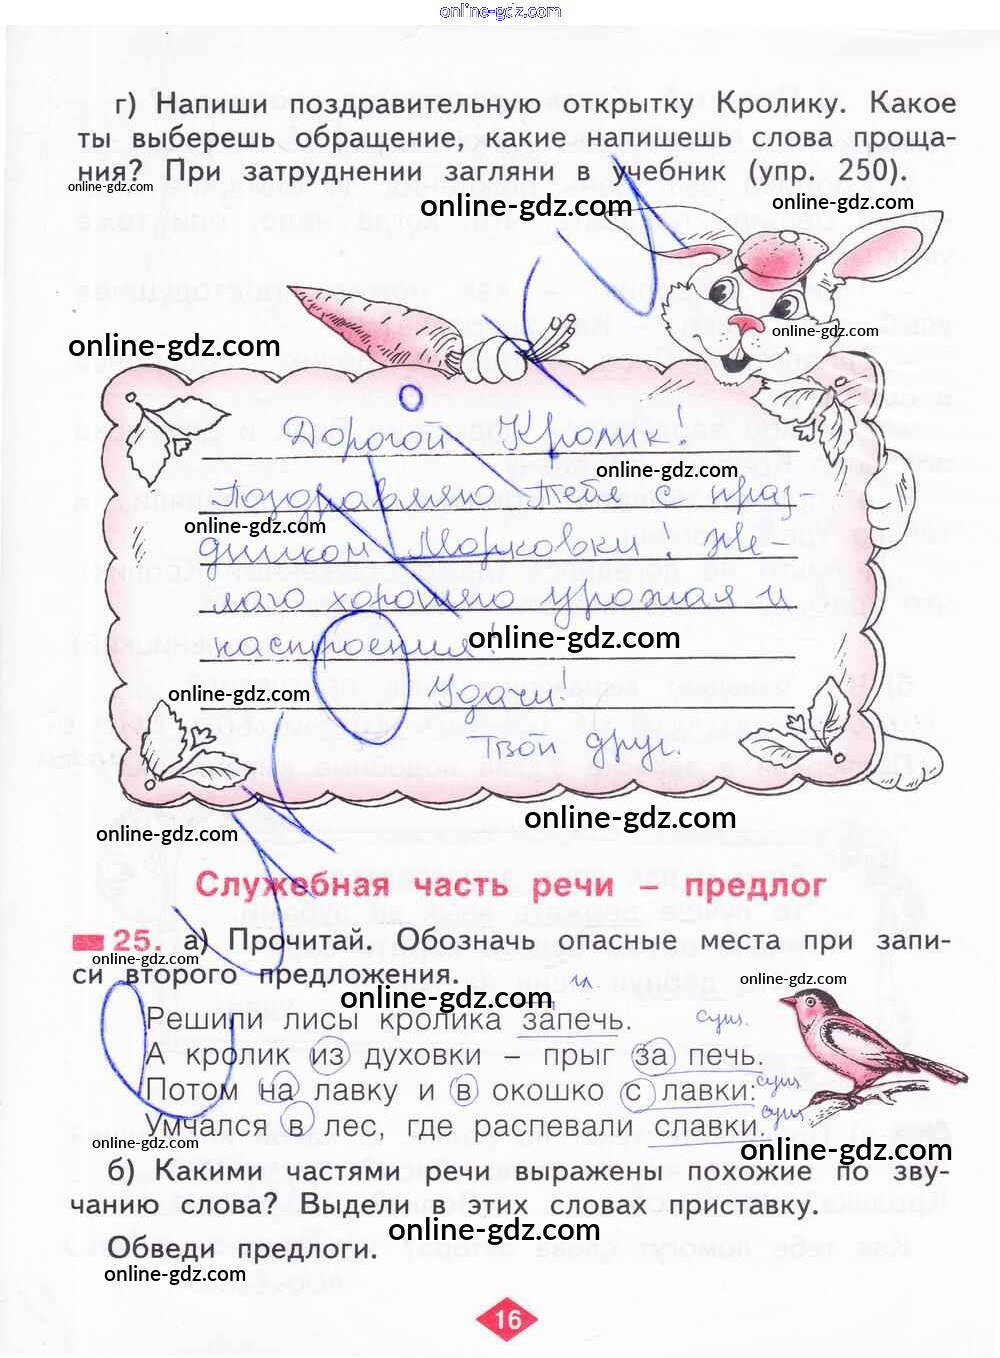 online-gdz.com
г) Напиши поздравительную открытку Кролику. Какое
ты выберешь обращение, какие напишешь слова проща-
ния? При затруднении загляни в учебник (упр. 250).
online-gdz.com
online-gdz.com
online-gdz.com
online-gdz.com
online-gdz.com
Дорогой Кролик!
online-gdz.com
Поздравляю тебя с праз-
online-gdz.com
дником Морковки! Же
лаю хорошего урожая и
настроения!
online-gdz.com
online-gdz.com
Удачи!
Твой друг.
online-gdz.com
online-gdz.com
Служебная часть речи – предлог
25. а) Прочитай. Обозначь опасные места при запи-
си второго предложения.
online-gdz.com
online-gdz.com
гл
Решили лисы кролика запечь.
сущ.
А кролик из духовки – прыг за печь.
Потом на лавку и в окошко с лавки:
сущ
Умчался в лес, где распевали славки.
сущ.
online-gdz.com
online-gdz.com
б) Какими частями речи выражены похожие по зву-
чанию слова? Выдели в этих словах приставку.
online-gdz.com
Обведи предлоги.
online-gdz.com
16